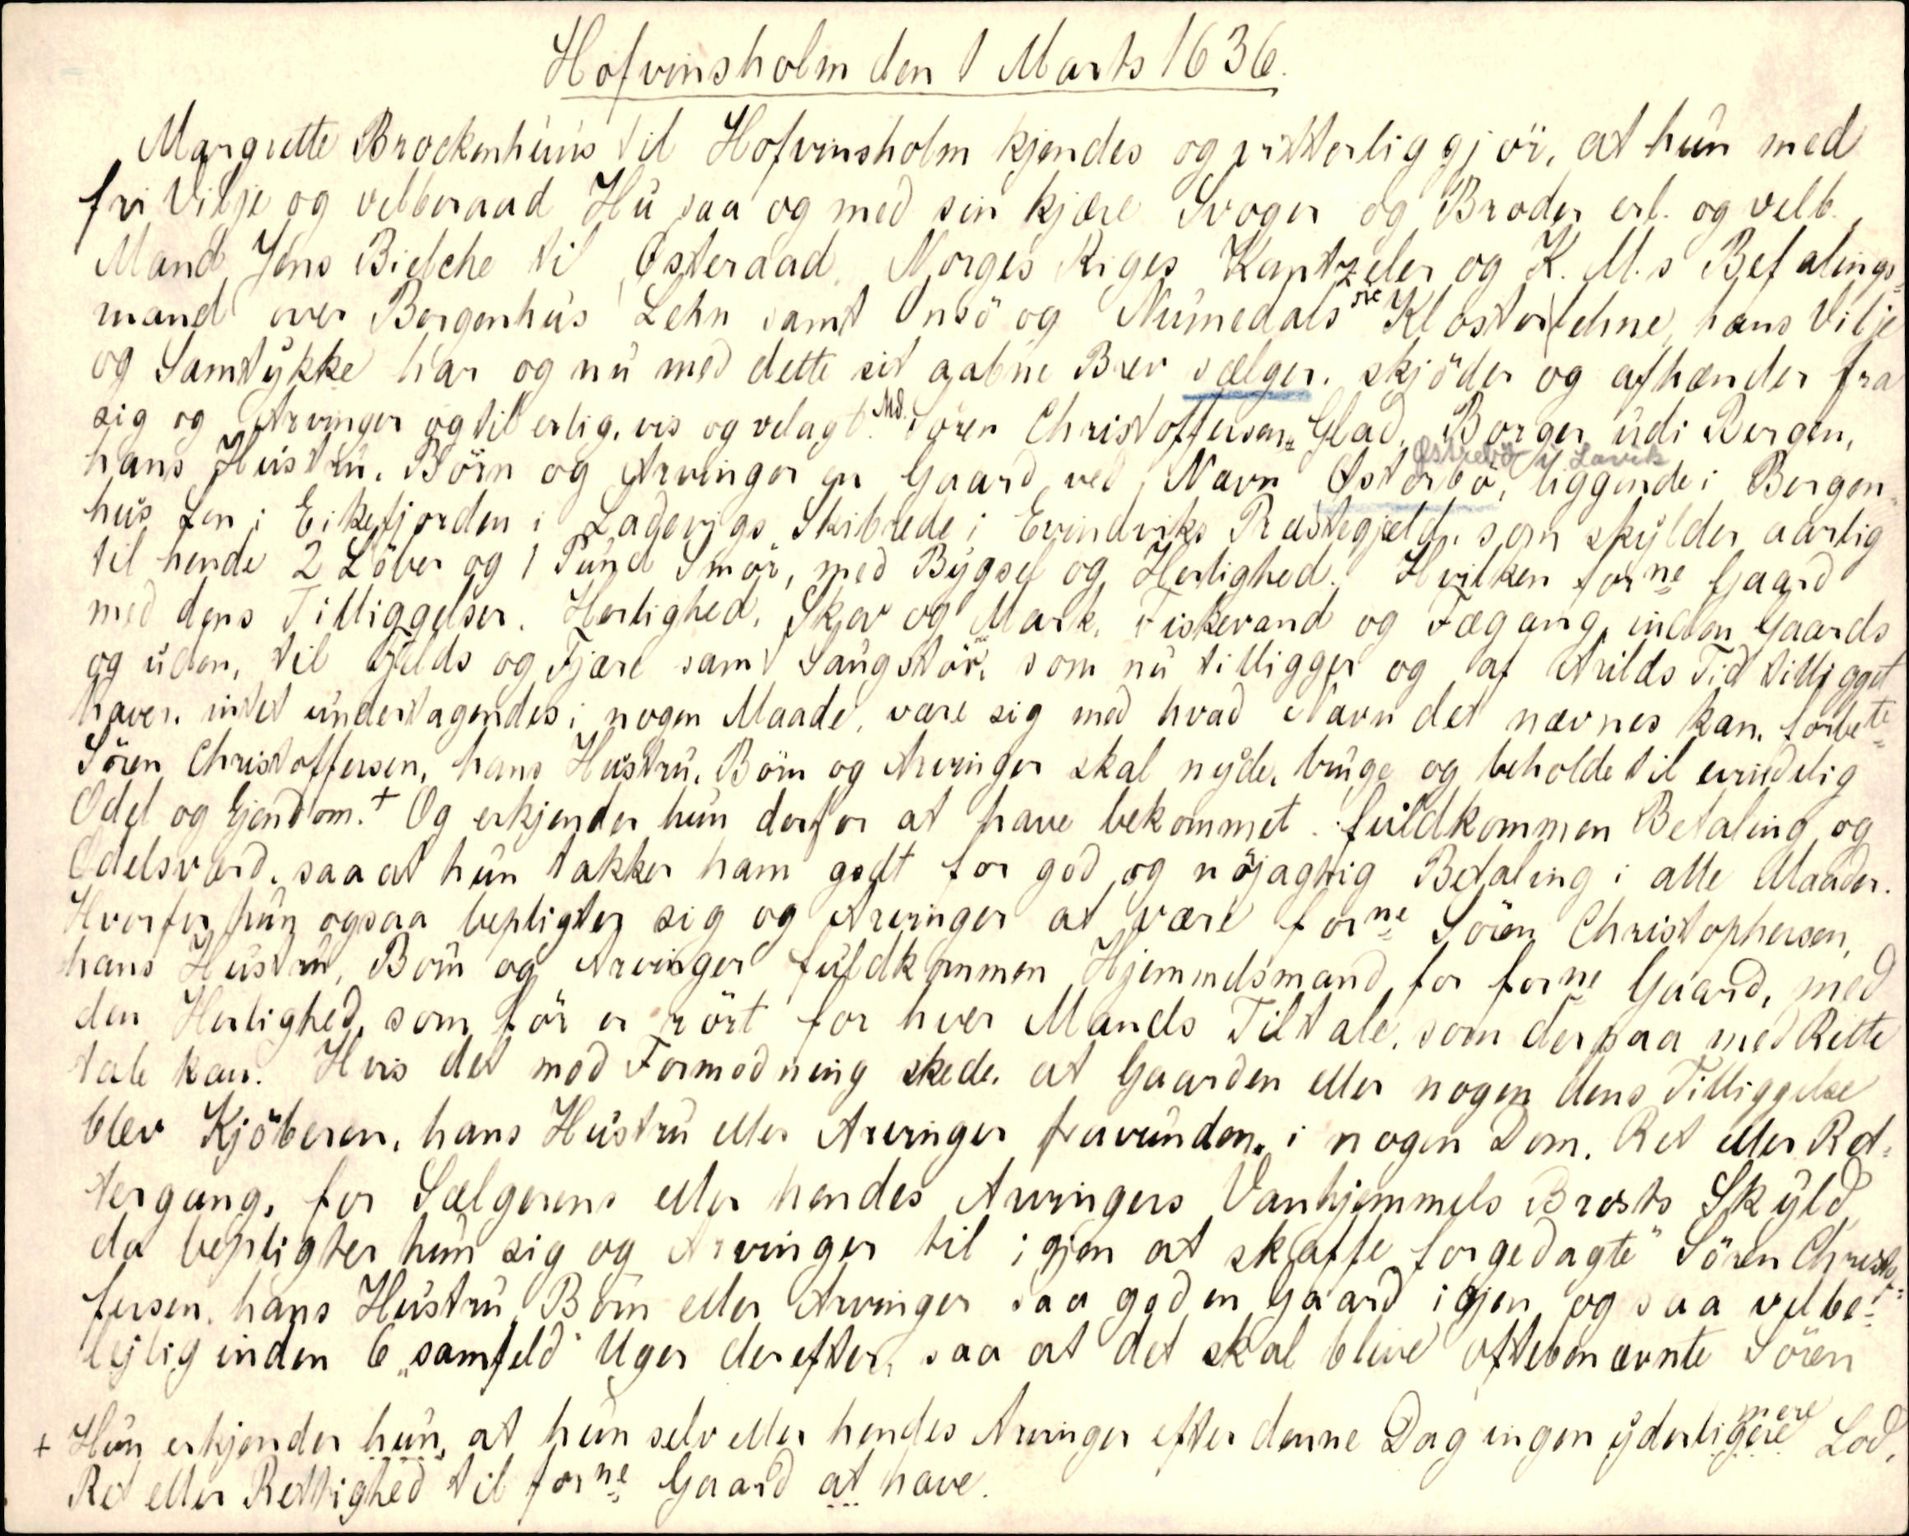 Hofvinsholm den 1 Marts 1636.
Margrette Brockenhuus til Hofvinsholm kjendes og vitterliggjör, at hun med
fri Vilje og velberaad Hu saa og med sin kjære Svoger og Broder erl. og velb.
Mand Jens Bielche til Østeraad, Norges Riges Kantzeler og K. M.s Befalings-
mand over Bergenhus Lehn samt Onsö og Numedals Klosterlehne, hans Vilje
og Samtykke har og nu med dette sit aabne Brev sælger, skjöder og afhænder fra
sig og Arvinger og til erlig, vis og velagt. Md. Sören Christoffersen Glad, Borger udi Bergen,
hans Hustru, Börn og Arvinger en Gaard ved Navn Østerbö, liggende i Bergen-
Østrebö i Lavik
hus Len i Eikefjorden i Ladevigs Skibrede i Evindviks Præstegjeld, som skylder aarlig
til hende 2 Löber og 1 Pund Smör, med Bygsel og Herlighed. Hvilken forne Gaard
med dens Tilliggelser, Herlighed, Skov og Mark, Fiskevand og Fægang, inden Gaards
og uden, til Fjelds og Fjære samt Saugstör, som nu tilligger og af Arilds Tid tilligget
haver, intet undertagendes i nogen Maade, være sig med hvad Navn det nævnes kan, forbete
Sören Christoffersen, hans Hustru, Börn og Arvinger skal nyde, bruge og beholde til evindelig
Odel og Ejendom. + Og erkjender hun derfor at have bekommet fuldkommen Betaling og
Odelsværd, saa at hun takker ham godt for god og nöjagtig Betaling i alle Maader.
Hvorfor hun ogsaa bepligter sig og Arvinger at være forne Sören Christophersen,
hans Hustru, Börn og Arvinger fuldkommen Hjemmelsmand for forne Gaard, med
den Herlighed, som för er rört for hver Mands Tiltale, som derpaa med Rette
tale kan. Hvis det mod Formodning skede, at Gaarden eller nogen dens Tilliggelse
blev Kjöberen, hans Hustru eller Arvinger fravunden, i nogen Dom, Ret eller Ret-
tergang, for Sælgerens eller hendes Arvingers Vanhjemmels Brösts Skyld,
da bepligter hun sig og Arvinger til igjen at skaffe forgedagte Sören Christof-
fersen, hans Hustru, Börn eller Arvinger saa god en Gaard igjen og saa velbe-
lejlig inden 6 "samfeld" Uger derefter, saa at det skal blive oftebenævnte Sören
+ Hun erkjender hun, at hun selv eller hendes Arvinger efter denne Dag ingen yderligere mere Lod,
Ret eller Rettighed til forne Gaard at have.